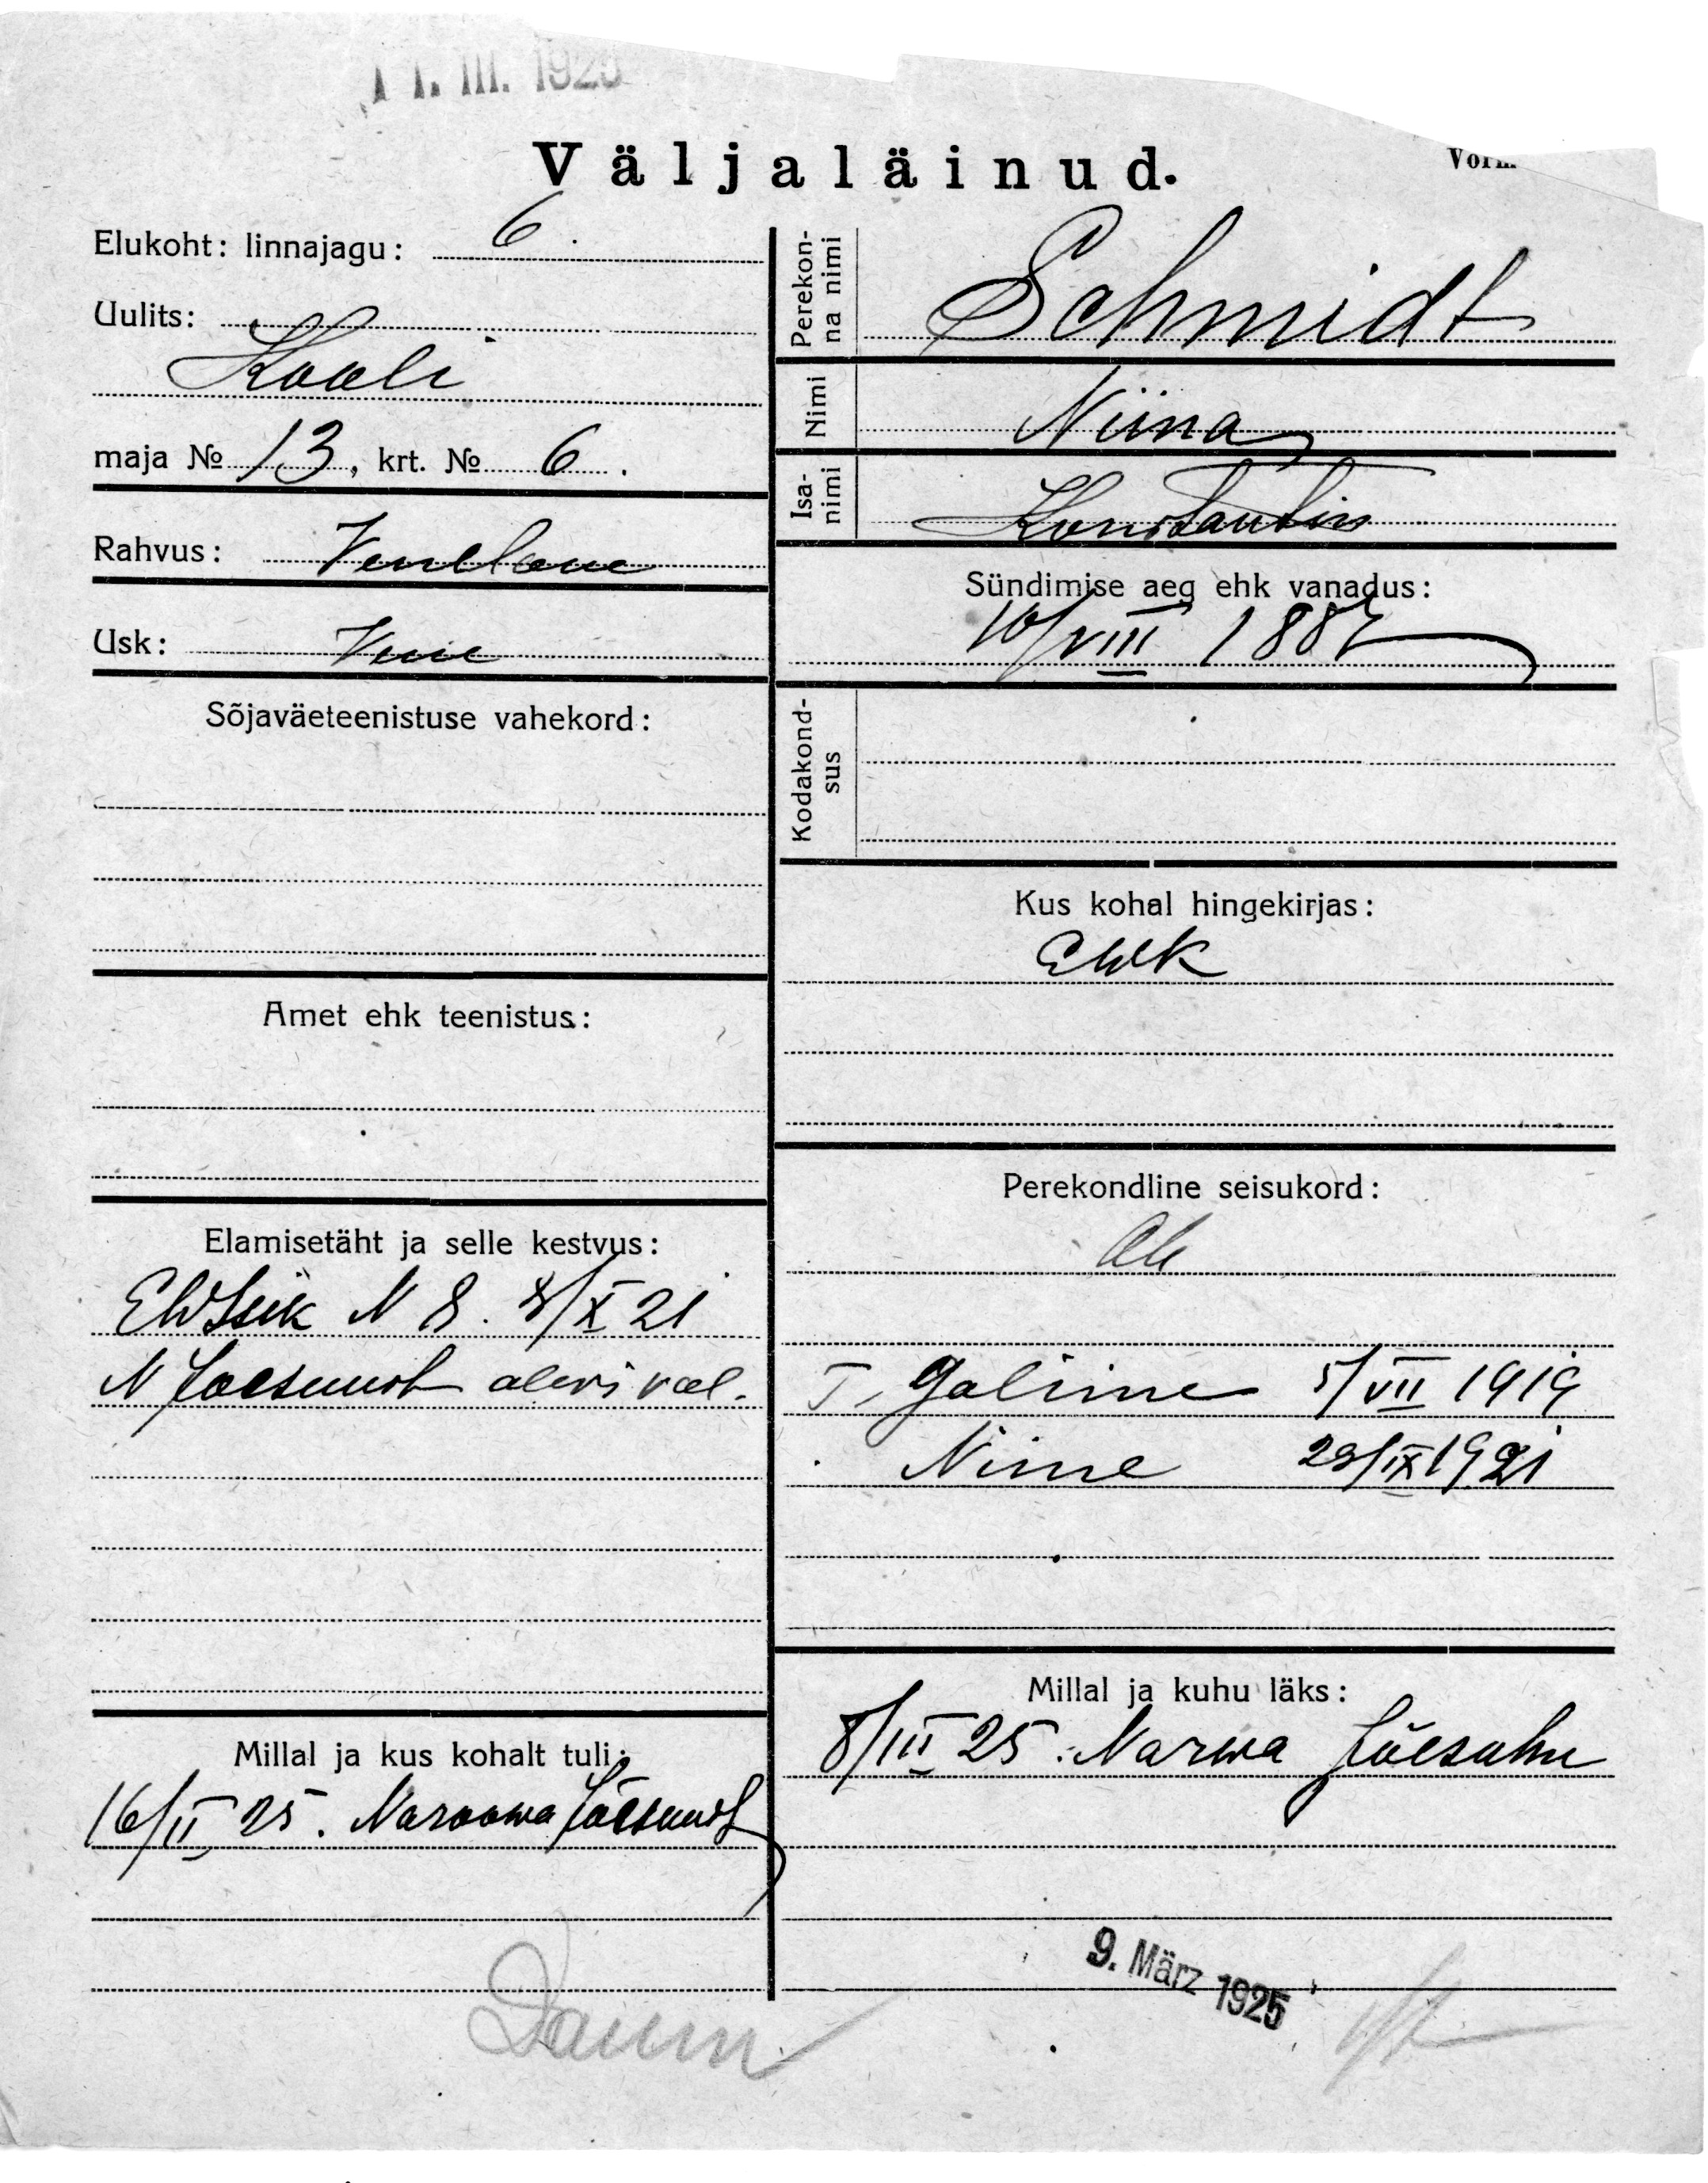 11. III. 1925
Väljaläinud.
Elukoht: linnajagu: 6.
Uulits:
Kooli
maja № 13, krt. № 6.
Rahvus: Venelane
Usk: Vene
Sõjaväeteenistuse vahekord:
Amet ehk teenistus:
Elamisetäht ja selle kestvus:
N 8. 8/X 21
N Joesuust alevi val.
Millal ja kus kohalt tuli:
16/II 25. Naroowa Jõesuust
Perekon-
na nimi
Schmidt
Nimi
Niina
Isa-
nimi
Konstantin
Sündimise aeg ehk vanadus:
10/VIII 1887
Kodakond-
sus
Kus kohal hingekirjas:
EWk
Perekondline seisukord:
Abi
T. Galiine 5/VII 1919
Niine 29/IX 1921
Millal ja kuhu läks:
8/III 25. Narwa Jõesuhu
9. März 1925